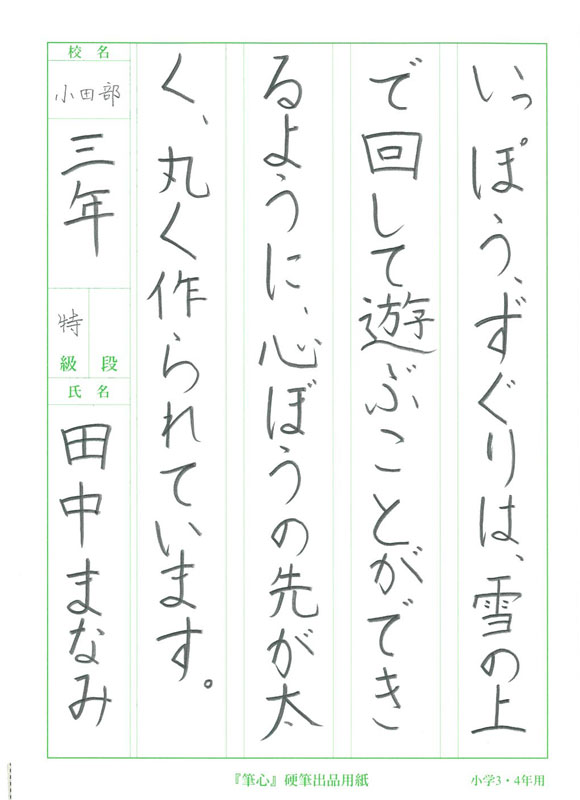 いっぽう、ずぐりは、雪の上
で回して遊ぶことができ
るように、心ぼうの先が太
く、丸く作られています。
校名
小田部
三年
特
級 段
氏名
田中まなみ
『筆心』硬筆出品用紙
小学3・4年用